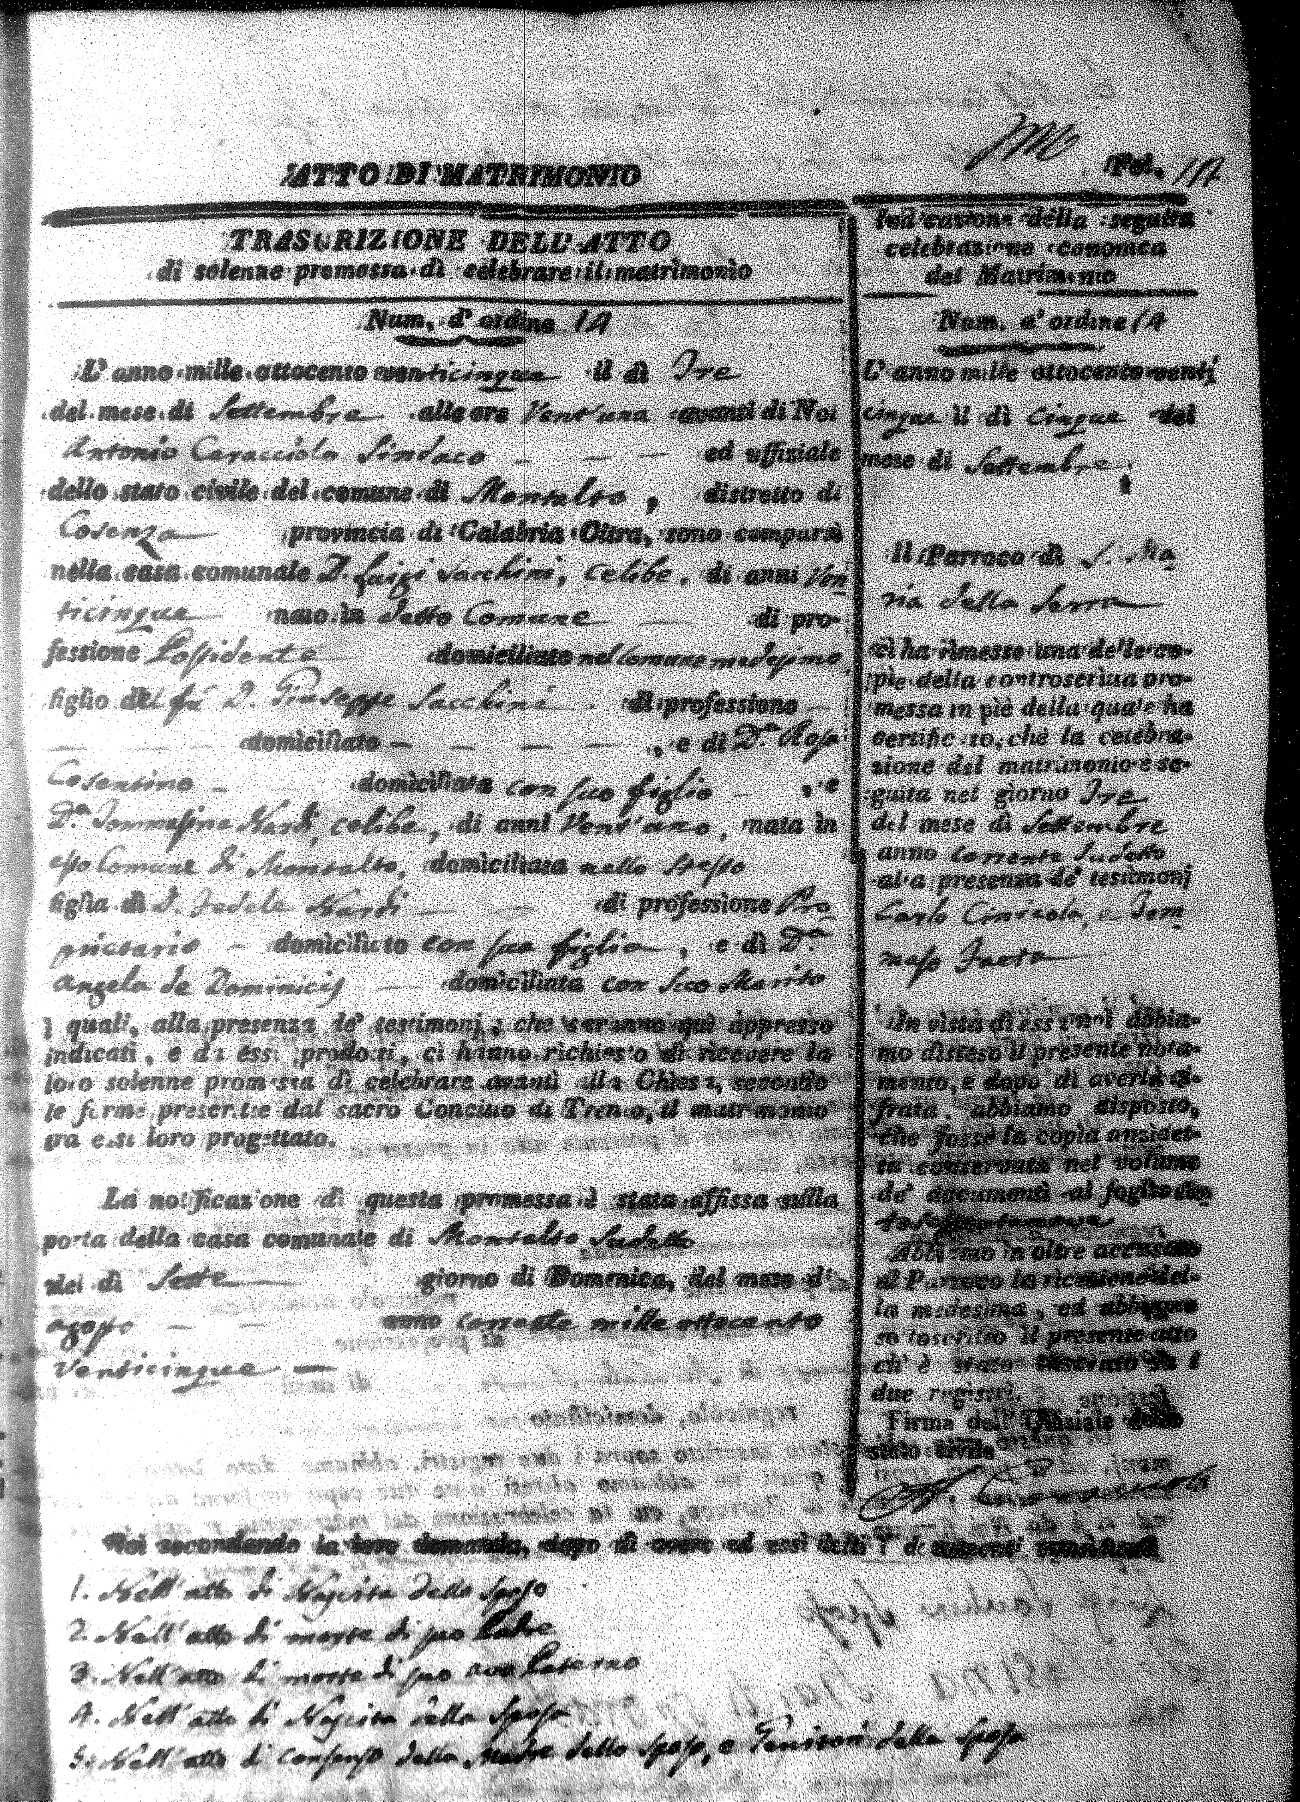 ATTO DI MATRIMONIO
Fol.
TRASCRIZIONE DELL' ATTO
di solenne promessa di celebrare il matrimonio
Num. d' ordine 14
L' anno mille ottocento venticinque il dì Tre
del mese di Settembre alle ore Vent'una avanti di Noi
Antonio Caracciolo Sindaco ed uffiziale
dello stato civile del comune di Montalto, distretto di
Cosenza provincia di Calabria Citra, sono comparsi
nella casa comunale D. Luigi Sacchini, celibe, di anni Ven
ticinque nato in detto Comune di pro-
fessione Possidente domiciliato nel Comune medesimo
figlio del fu D. Giuseppe Sacchini di professione
domiciliato , e di D.a Rosa
Cosentino domiciliata con suo figlio , e
D.a Tommasina Nardi, celibe, di anni Vent'uno, nata in
esso Comune di Montalto, domiciliata nello stesso
figlia di D. Fedele Nardi di professione Pro
prietario domiciliato con sua figlia, e di D.a
Angela de Dominicis domiciliata con suo Marito
i quali, alla presenza de' testimonj, che saranno quì appresso
indicati, e da essi prodotti, ci hanno richiesto di ricevere la
loro solenne promessa di celebrare avanti alla Chiesa, secondo
le forme prescritte dal sacro Concilio di Trento, il matrimonio
tra essi loro progettato.
La notificazione di questa promessa è stata affissa sulla
porta della casa comunale di Montalto sudetto
del dì Sette giorno di Domenica, del mese d'
agosto anno corrente mille ottocento
venticinque
Indicazione della seguita
celebrazione canonica
del Matrimonio
Num. d' ordine 14
L' anno mille ottocento venti
cinque il dì cinque del
mese di Settembre
Il Parroco di S. Ma
ria della Serra
ci ha rimesso una delle co-
pie della controscritta pro-
messa in piè della quale ha
certificato, che la celebra-
zione del matrimonio è se-
guita nel giorno Tre
del mese di Settembre
anno corrente sudetto
alla presenza de' testimonj
Carlo e Tom
maso
In vista di essa noi abbia-
mo disteso il presente nota-
mento, e dopo di averla ci-
frata, abbiamo disposto,
che fosse la copia anzidet-
ta conservata nel volume
de' documenti al foglio
Abbiamo in oltre accusato
al Parroco la ricezione del-
la medesima, ed abbiamo
sottoscritto il presente atto
ch' è stato inscritto su i
due registri.
Firma dell' Uffiziale dello
stato civile
Noi secondando la loro domanda, dopo di avere ad essi letti i documenti
1. Nell'atto di Nascita dello sposo
2. Nell'atto di morte di suo Padre
3. Nell'atto di morte di suo avo Paterno
4. Nell'atto di Nascita della Sposa
5. Nell'atto di consenso della Madre dello sposo, e Genitori della sposa